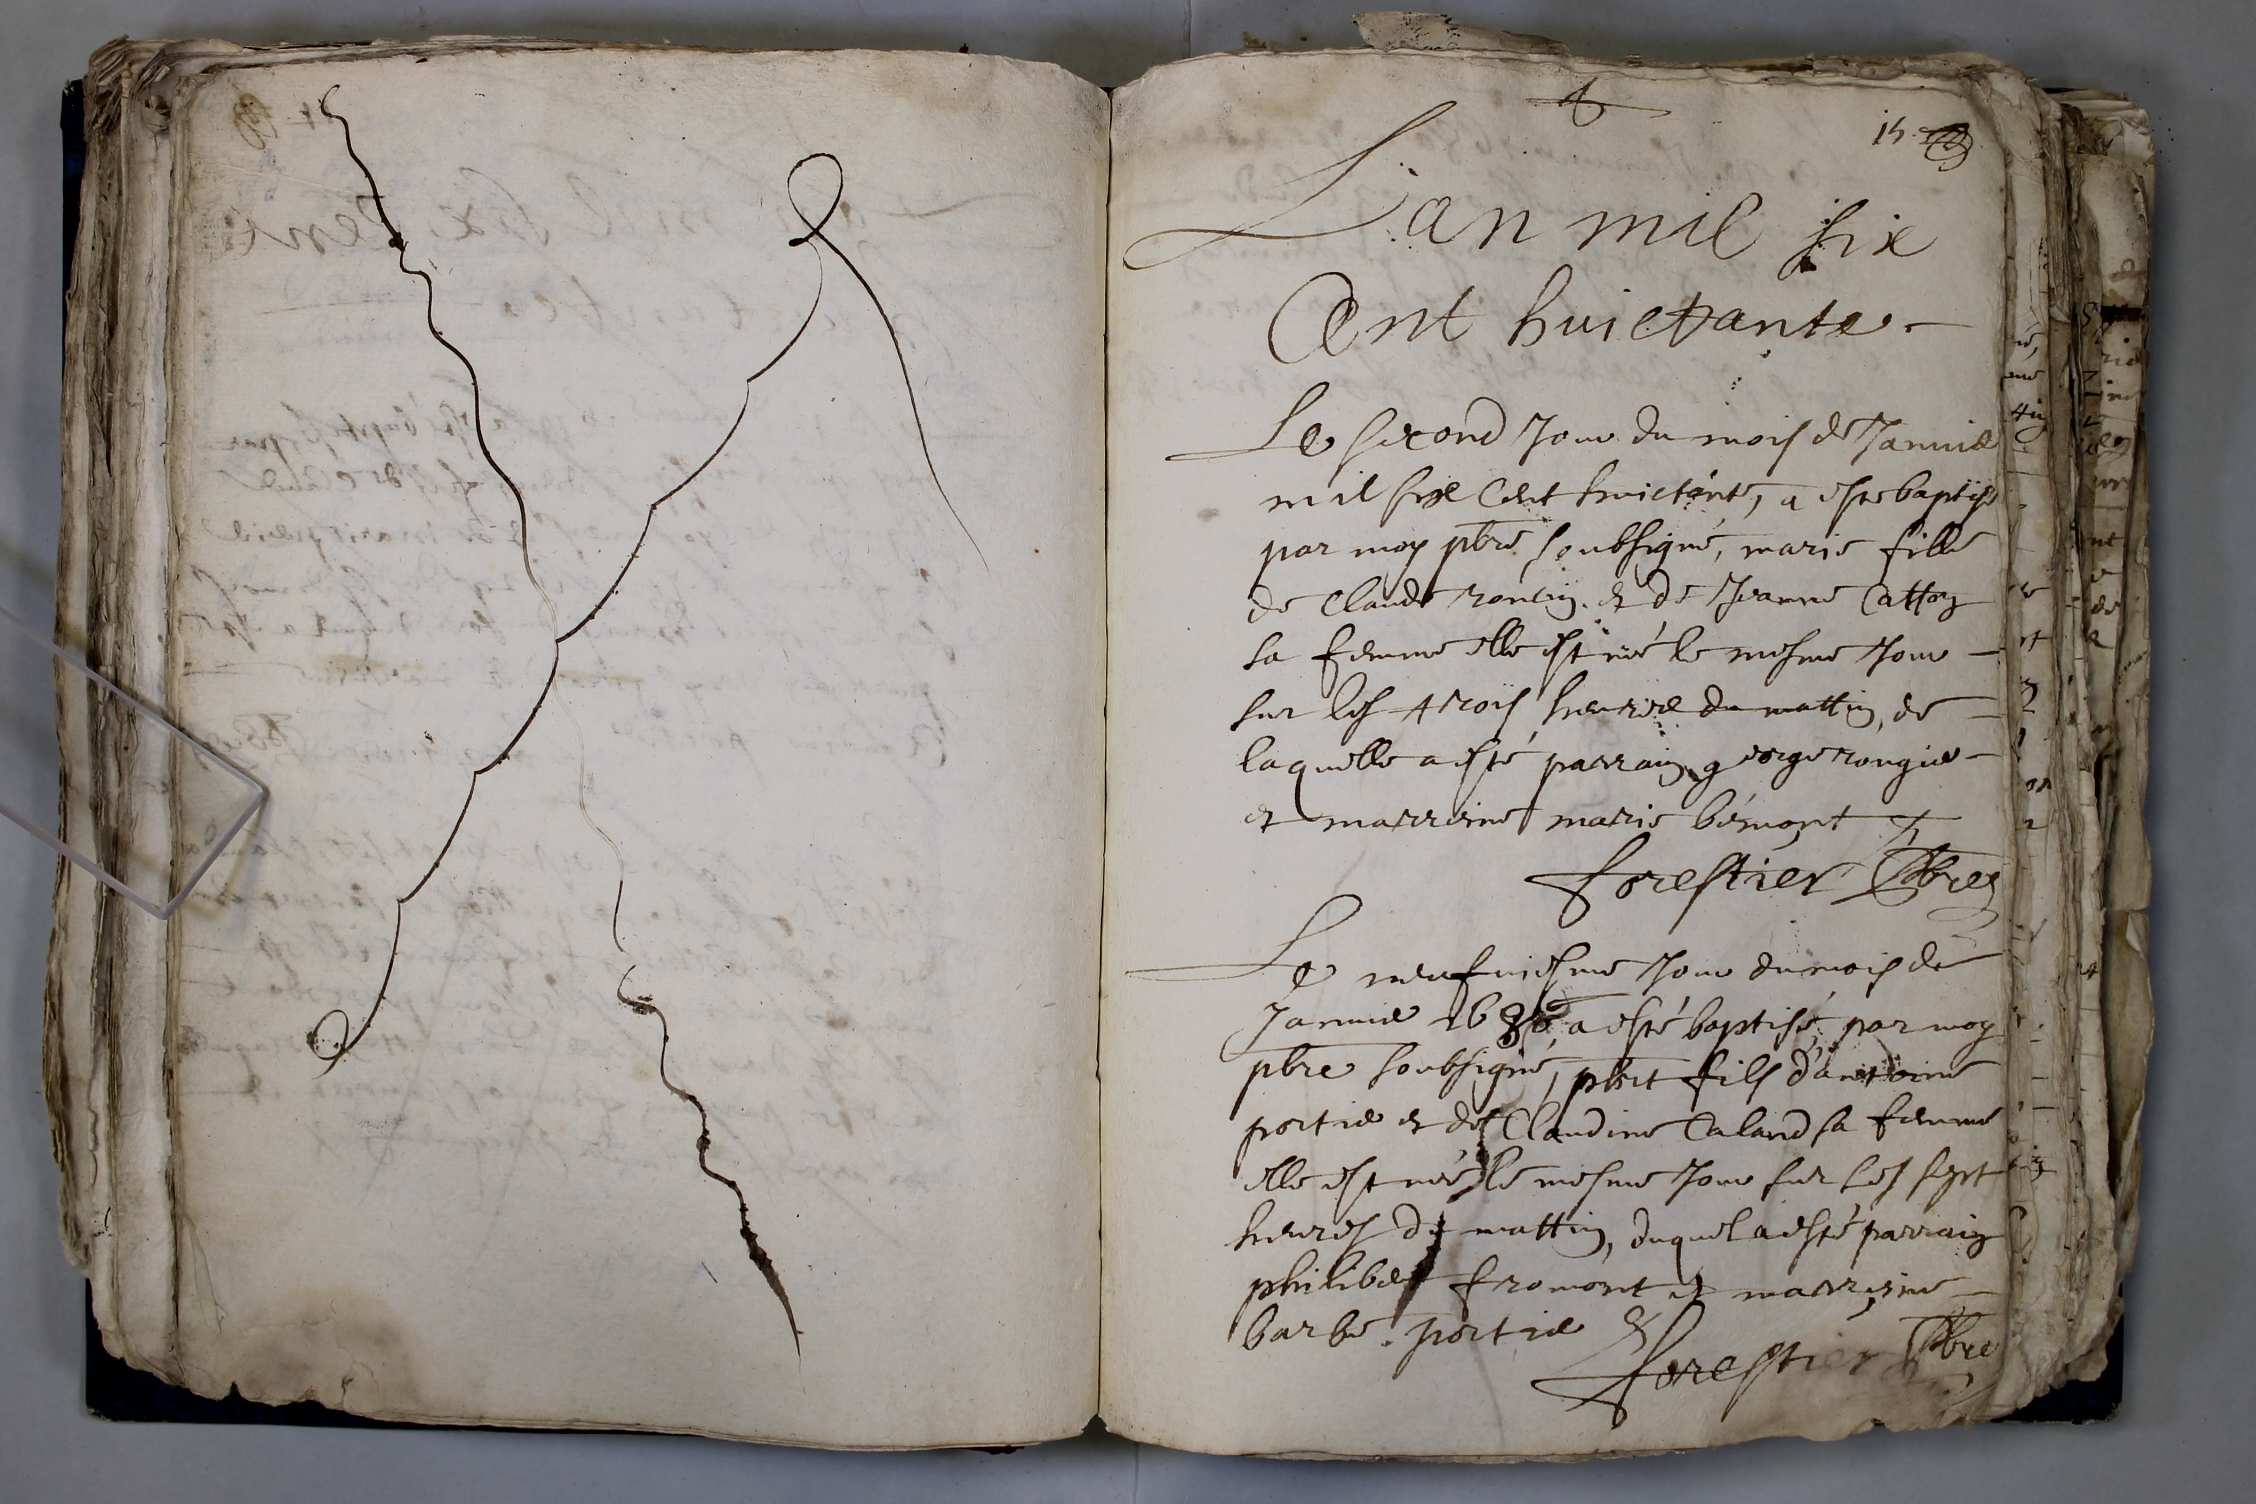 15
L'an mil six
Cent huictante
Le second Jour du mois de Januié
mil six Cent huictante, a esté baptisé
par moy pbre soubsigné, marie fille
de Claude et de Jeanne Catton
sa femme elle est née le mesme Jour
sur les trois heures du mattin, de
laquelle a esté parrain george rongié
et marreine marie bémont
forestier pbre
Le neufuiesme Jour du mois de
Januié 1680, a esté baptisé par moy
pbre soubsigné, fils d'antoine
portié et de Claudine Caland sa femme
elle est née le mesme Jour sur les sept
heures du mattin, duquel a esté parrain
philibert fromont et marreine
barbe portié
forestier pbre